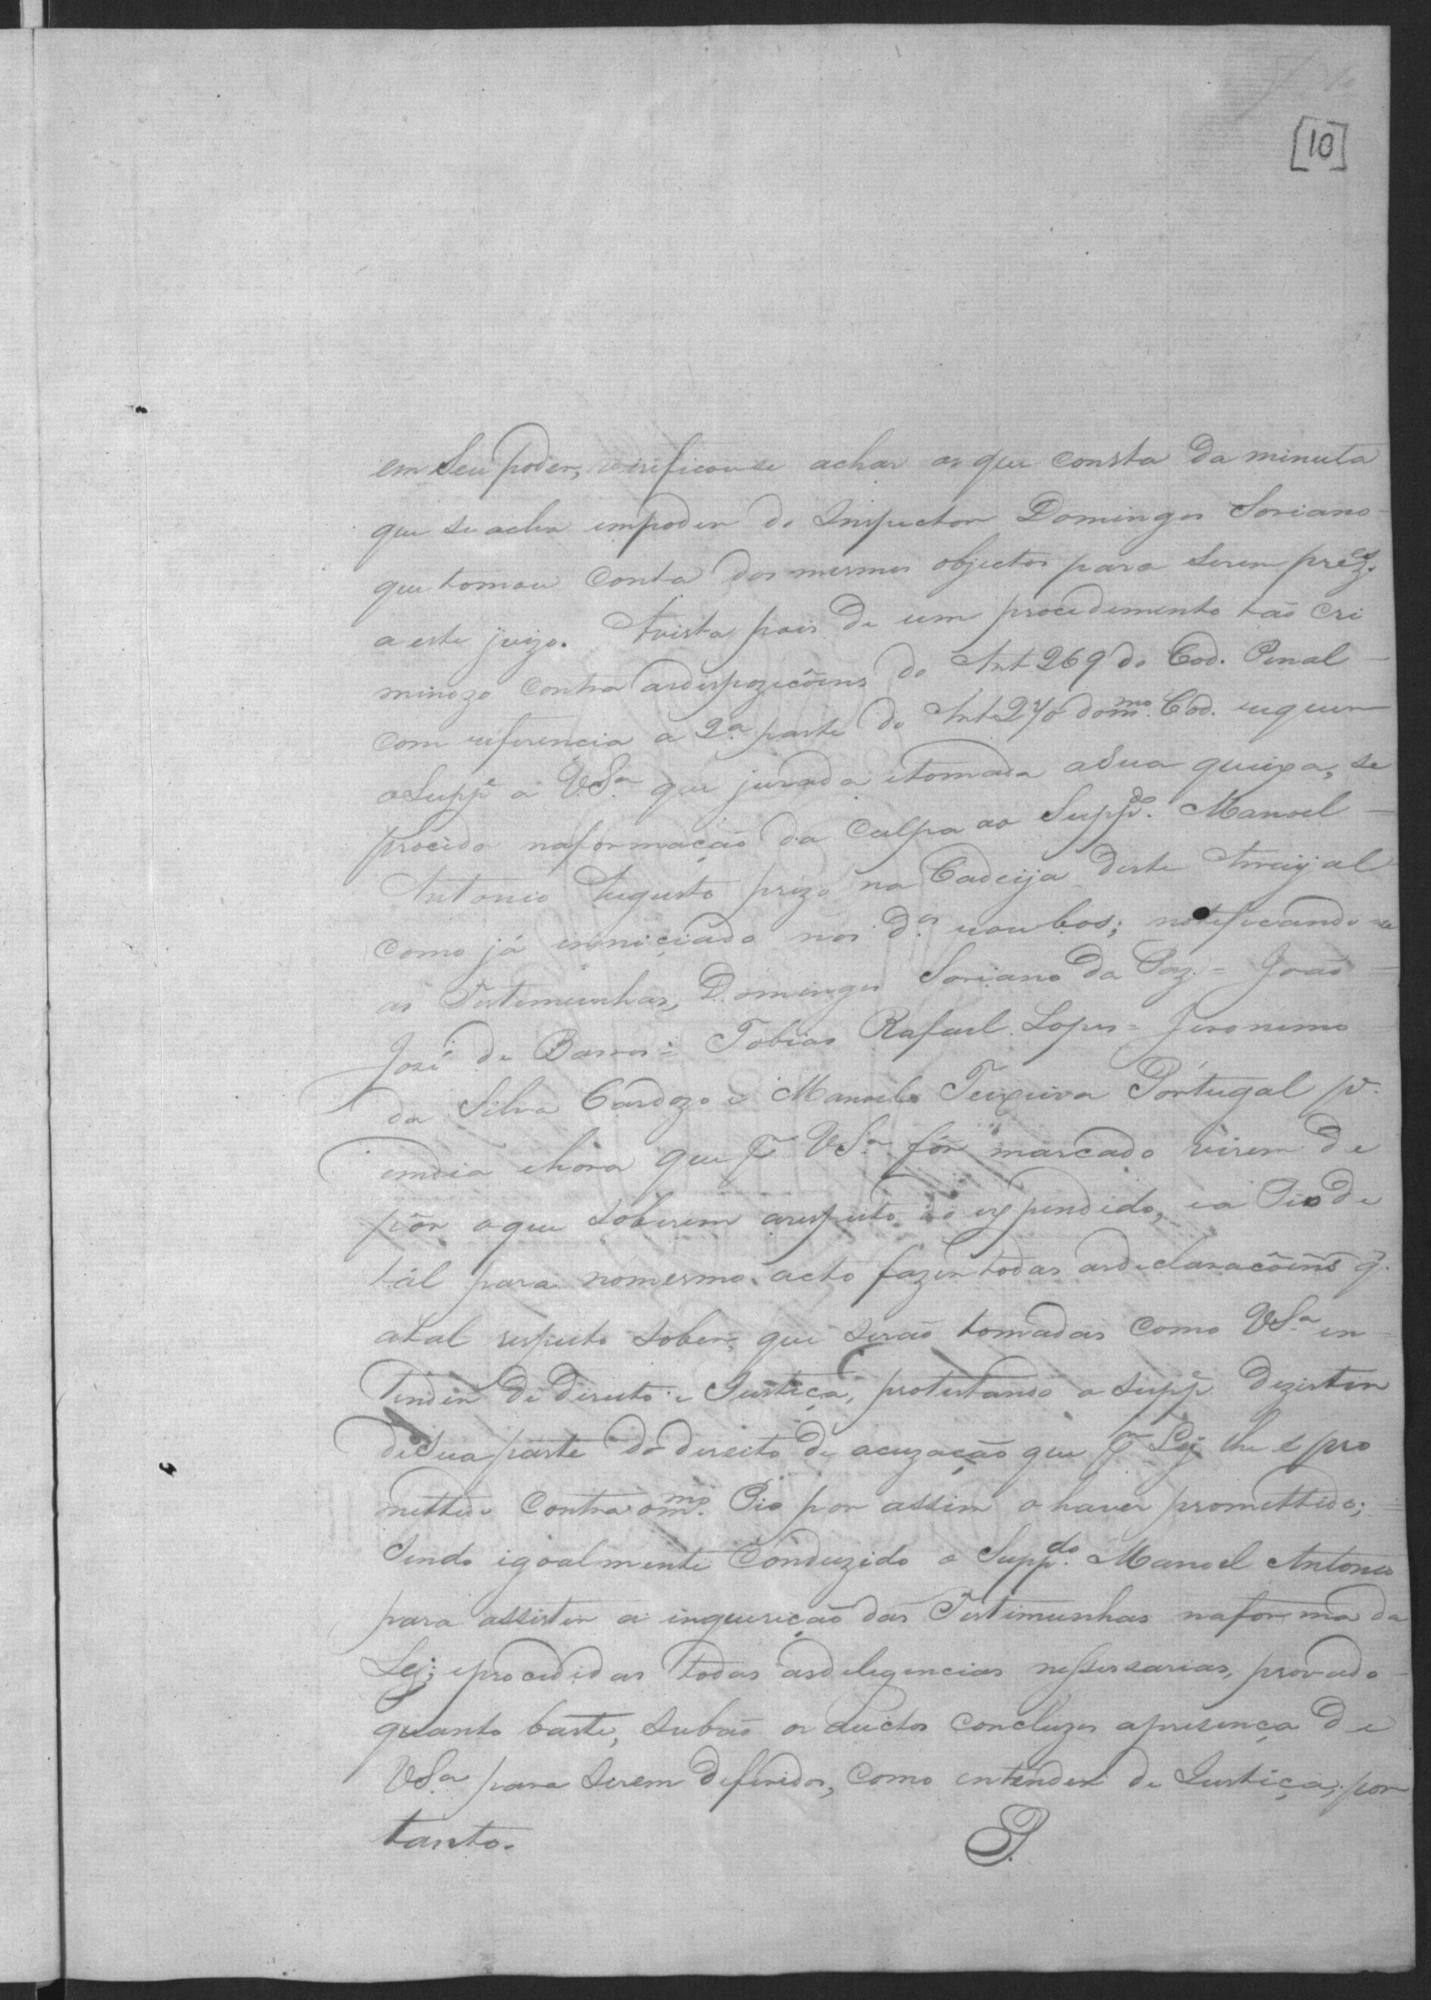 [10]
em Seu poder, virificouse achar os que consta da minuta
que se acha empoder do Inspector Domingos Soriano
que tomou Conta dos mesmos objectos para serem prezes.
a este juizo. Avista pois de um procedimento tão Cri
minozo Contra asdespoziçõens do Art 269 do Cod. Penal
Com referencia a 2ª parte do Art 270 dommo. Cod. requer
oSuppe a V.Sª que jurada etomada aSua queixa, se
proceda naformação da Culpa ao Suppdo. Manoel
Antonio Augusto prezo na Cadeija deste Arraijal
Como já inniciado nos dos roubos; notificando-se
as Testemunhas, Domingos Soriano da Paz = João
José de Barros = Tobias Rafael Lopes = Jeronimo
da Silva Cardozo e Manoel Teixeira Portugal pª
emdia ehora que pr VSª fôr marcado virem de
pôr oque Soberem arespeito do expendido, ea Pio de
tál para nomesmo acto fazer todas asdeclaracõens q.
atal respeito Sober, que serão tomadas Como VSª en
tender de Direito e Justiça, protestando o Suppe dezistir
deSua parte do direito de acuzação que pr Lej lhe é pro
mettido Contra ommo. Pio por assim o haver promettido;
Sendo igoalmente Conduzido o Suppdo. Manoel Antonio
para assistir a inquirição das Testimunhas naforma da
Lej; eprocedidas todas asdelegencias nessessarias, provado
quanto baste, Subão os auctos Concluzos apresença de
VSª para Serem deferidos, Como entender de Justiça, por
tanto.
P.